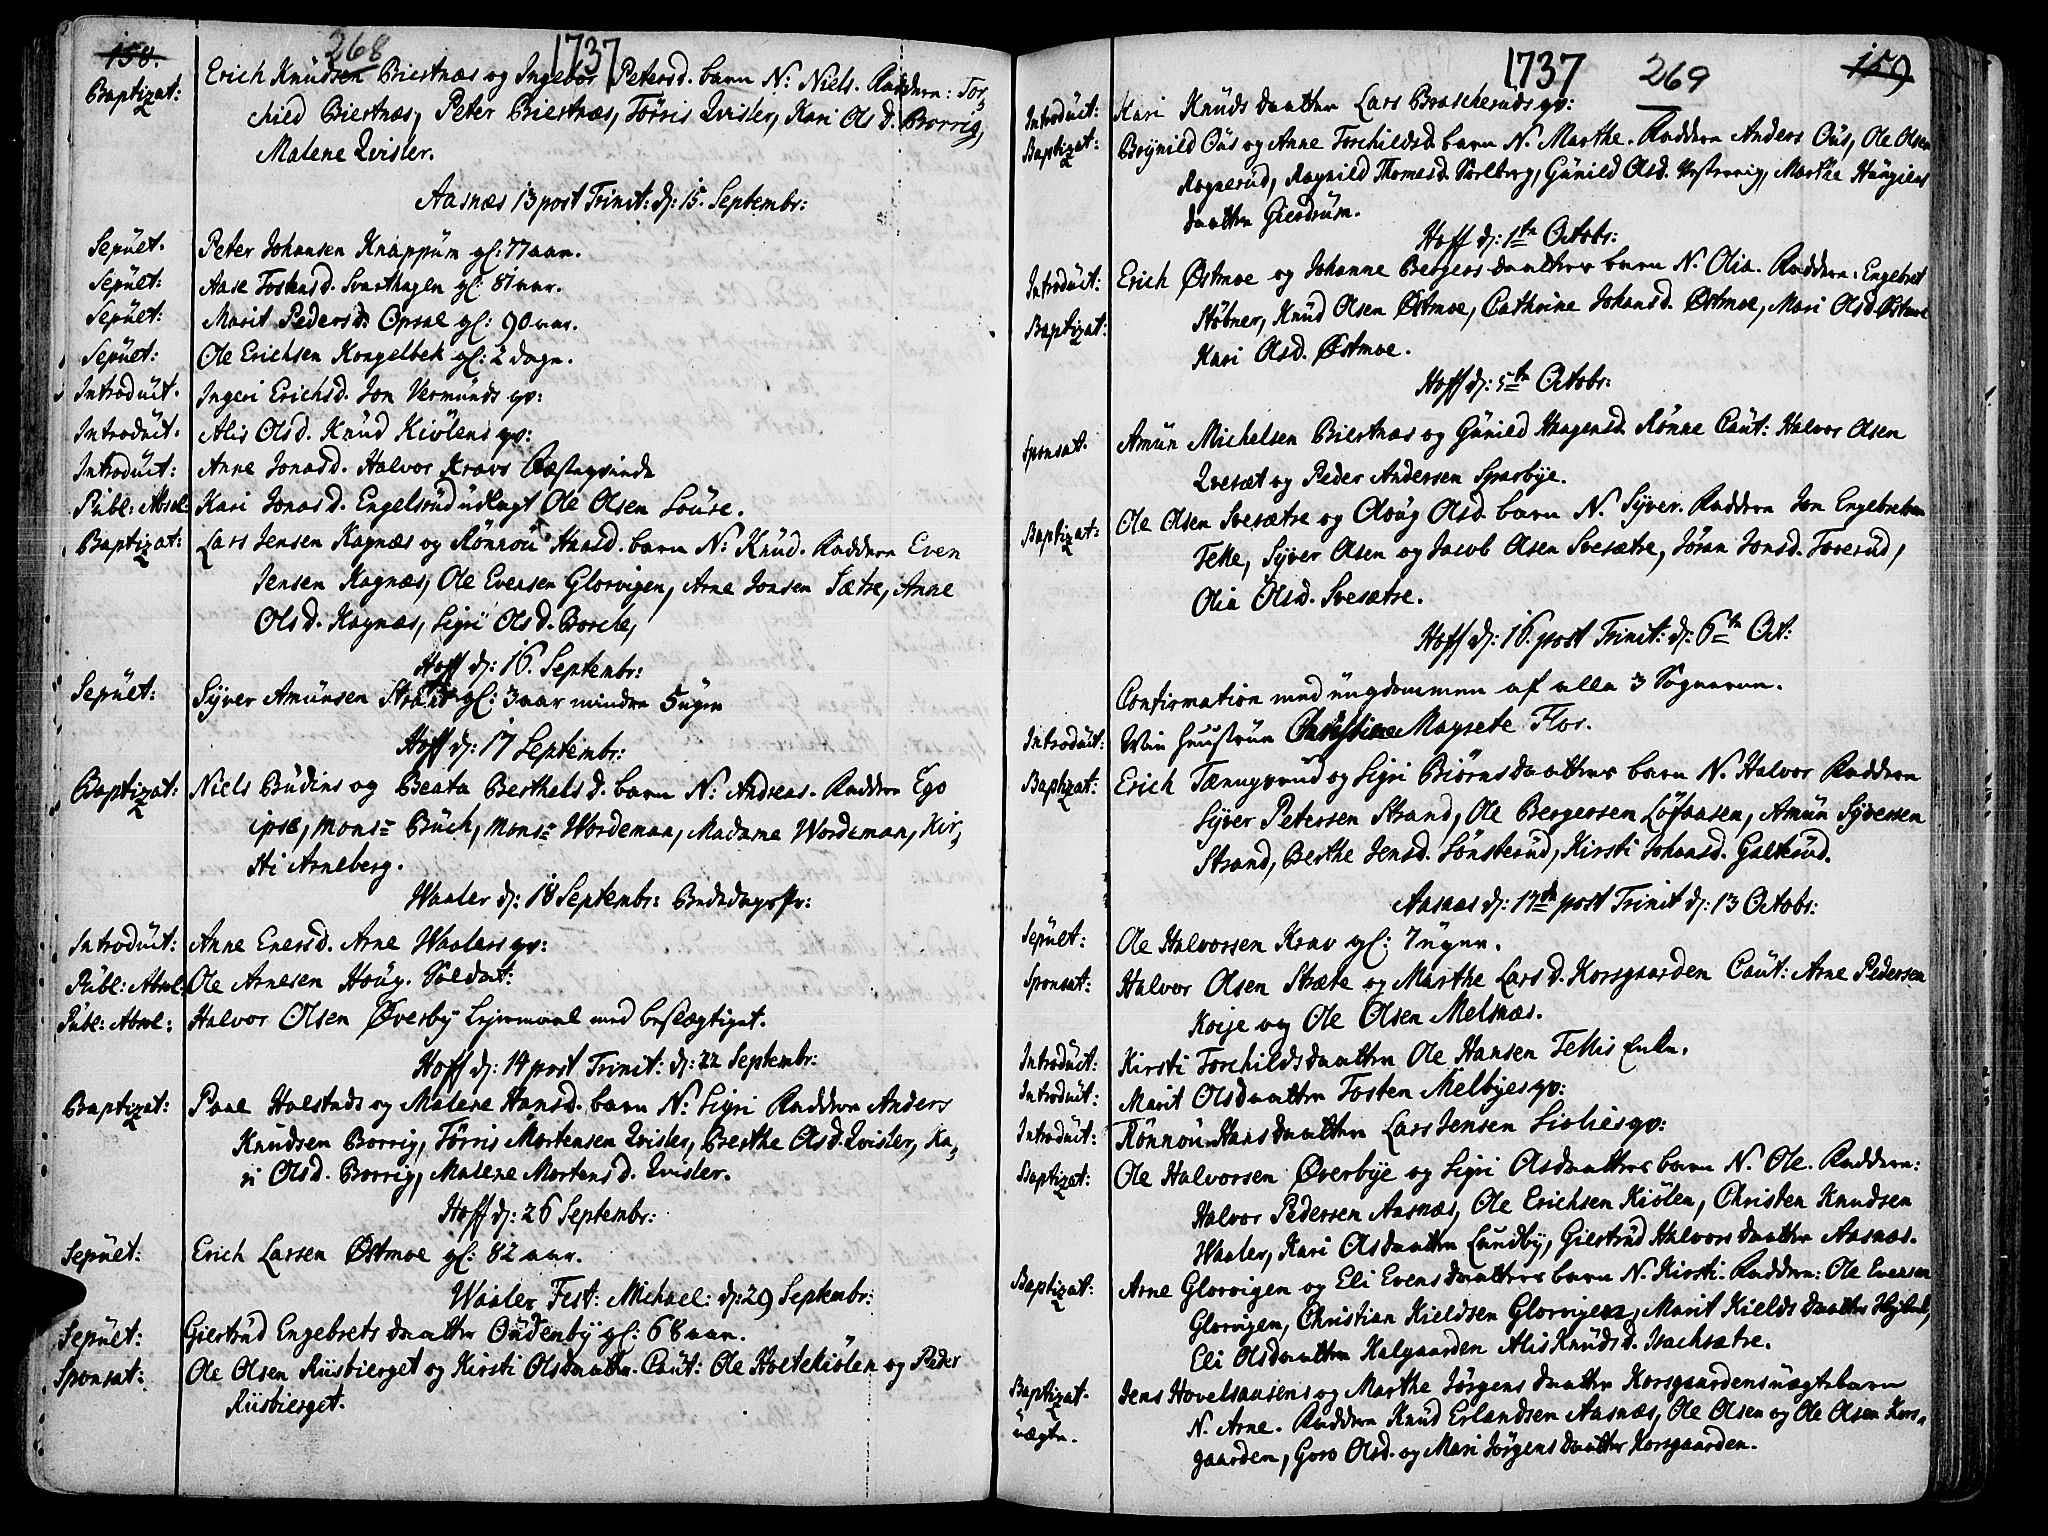 158. 268 1737
Baptizat: Erich Knudsen Biestnæs og Ingebor Petersd. barn N: Niels. Faddern: Tor-
child Biestnæs, Peter Biestnæs, Törris Qvisler, Kari Olsd. Borrig,
Malene Qvisler.
Aasnæs 13 post Trinit: d: 15. Septembr:
Sepult. Peter Johansen Knappüm gl: 77 aar.
Sepult: Aase Tostensd. Svarthagen gl: 81 aar.
Sepult: Marit Pedersd. Opsal gl: 90 aar.
Sepult: Ole Erichsen Kongelbek gl: 2 dage.
Introduct. Ingeri Erichsd. Jon Vermünds qv:
Introduct. Alis Olsd. Knüd Kiölens qv:
Introduct: Anne Jonasd. Halvor Kravs Fæsteqvinde
Publ: Absol: Kari Jonasd. Engelsrüd udlagt Ole Olsen Loüre.
Baptizat: Lars Jensen Kagnæs og Rönnou Hansd. barn N: Knud. Faddern Even
Jensen Kagnæs, Ole Evensen Glorvigen, Arne Jonsen Sætre, Anne
Olsd. Kagnæs, Sigri Olsd. Borche,
Hoff d: 16. Septembr:
Sepult: Syver Amünsen Strand gl: 3 aar mindre 5 uger
Hoff d: 17 Septembr:
Baptizat: Niels Büdins og Beata Berthelsd. barn N: Andreas. Faddern Ego
ipse, Mons: Büch, Mons: Wordeman, Madame Wordeman, Kir-
sti Arneberg.
Waaler d: 18 Septembr: Bededagspr:
Introduct: Anne Enersd. Arne Waalers qv:
Publ: Absol: Ole Arnesen Houg. Soldat:
Publ: Absol: Halvor Olsen Øverby Lejermaal med besligtiget.
Hoff d: 14 post Trinit: d: 22 Septembr:
Baptizat: Paal Halstads og Malene Hansd. barn N: Sigri Faddern Anders
Knudsen Borrig, Törris Mortensen Qvisler, Berthe Olsd. Qvisler, Ka-
ri Olsd. Borrig, Malene Mortensd. Qvisler.
Hoff d: 26 Septembr:
Sepult: Erich Larsen Østmoe gl: 82 aar.
Waaler Fest: Michael: d: 29 Septembr:
Sepult: Giertrüd Engebrets daatter Oudenby gl: 68 aar.
Sponsat: Ole Olsen Riisbierget og Kirsti Olsdaatter. Caut: Ole Holtekiölen og Peder
Riisbierget.
1737 269 159
Introduct: Kari Knüds daatter Lars Bracheruds qv:
Baptizat: Brynild Oüs og Anne Torchildsd. barn N. Marthe. Faddern Anders Oüs, Ole Olsen
Rognerüd, Ragnild Thomesd. Sorlberg, Günild Olsd. Vestrevig, Marthe Haagens
daatter Gierdrüm.
Hoff d: 1te Octobr:
Introduct: Erich Østmoe og Johanne Bergers daatters barn N. Olia. Faddern: Engebret
Baptizat: Stübner, Knüd Olsen Østmoe, Cathrine Johansd. Østmoe, Mari Olsd. Østmoe
Kari Olsd. Østmoe.
Hoff d: 5te Octobr:
Sponsat. Amün Michelsen Biestnæs og Günild Haagensd. Rönne Caut: Halvor Olsen
Qvesæt og Peder Andersen Sparbye.
Baptizat: Ole Olsen Svesætre og Oloug Olsd. barn N. Syver. Faddern Jon Engebretsen
Telle, Syver Olsen og Jacob Olsen Svesætre, Jöran Jonsd. Toverud,
Olia Olsd. Svesætre.
Hoff d: 16. post Trinit: d: 6te Oct:
Confirmation med ungdommen af alle 3 Sognerne.
Introduct: Min Hustrue Christiane Magrete Flor.
Baptizat: Erich Tænngsrud og Sigri Biörnsdaatters barn N. Halvor Faddern
Syver Petersen Strand, Ole Bergersen Löfaasen, Amün Syversen
Strand, Berthe Jensd. Sönsterüd, Kirsti Johansd. Galterüd.
Aasnæs d: 17de post Trinit d: 13 Octobr:
Sepult: Ole Halvorsen Krav gl: 7 uger.
Sponsat: Halvor Olsen Stræte og Marthe Larsd. Korsgaarden Caut: Arne Pedersen
Koije og Ole Olsen Melsnæs.
Introduct: Kirsti Torchildsdaatter Ole Hansen Tellis Enke.
Introduct: Marit Olsdaatter Tosten Melbyes qv:
Introduct: Rönnou Hansdaatter Lars Jensen Liolies qv:
Baptizat: Ole Halvorsen Øverbye og Sigri Olsdaatters barn N. Ole. Faddern:
Halvor Pedersen Aasnæs, Ole Erichsen Kiölen, Christen Knudsen
Waaler, Kari Olsdaatter Lundby, Giertrüd Halvorsdaatter Aasnæs.
Baptizat: Arne Glorvigen og Eli Evensdaatters barn N. Kirsti. Faddern: Ole Evensen
Glorvigen, Christian Kieldsen Glorvigen, Marit Kieldsdaatter
Eli Olsdaatter Kalgaarden Alis Knüdsd. Isachsætre.
Baptizat. Jens Hovelsaasens og Marthe Jörgens daatter Korsgaardens uægte barn
uægte. N. Arne. Faddern Knüd Erlandsen Aasnæs, Ole Olsen og Ole Olsen Kors-
gaarden, Goro Olsd. og Mari Jörgens daatter Korsgaarden.